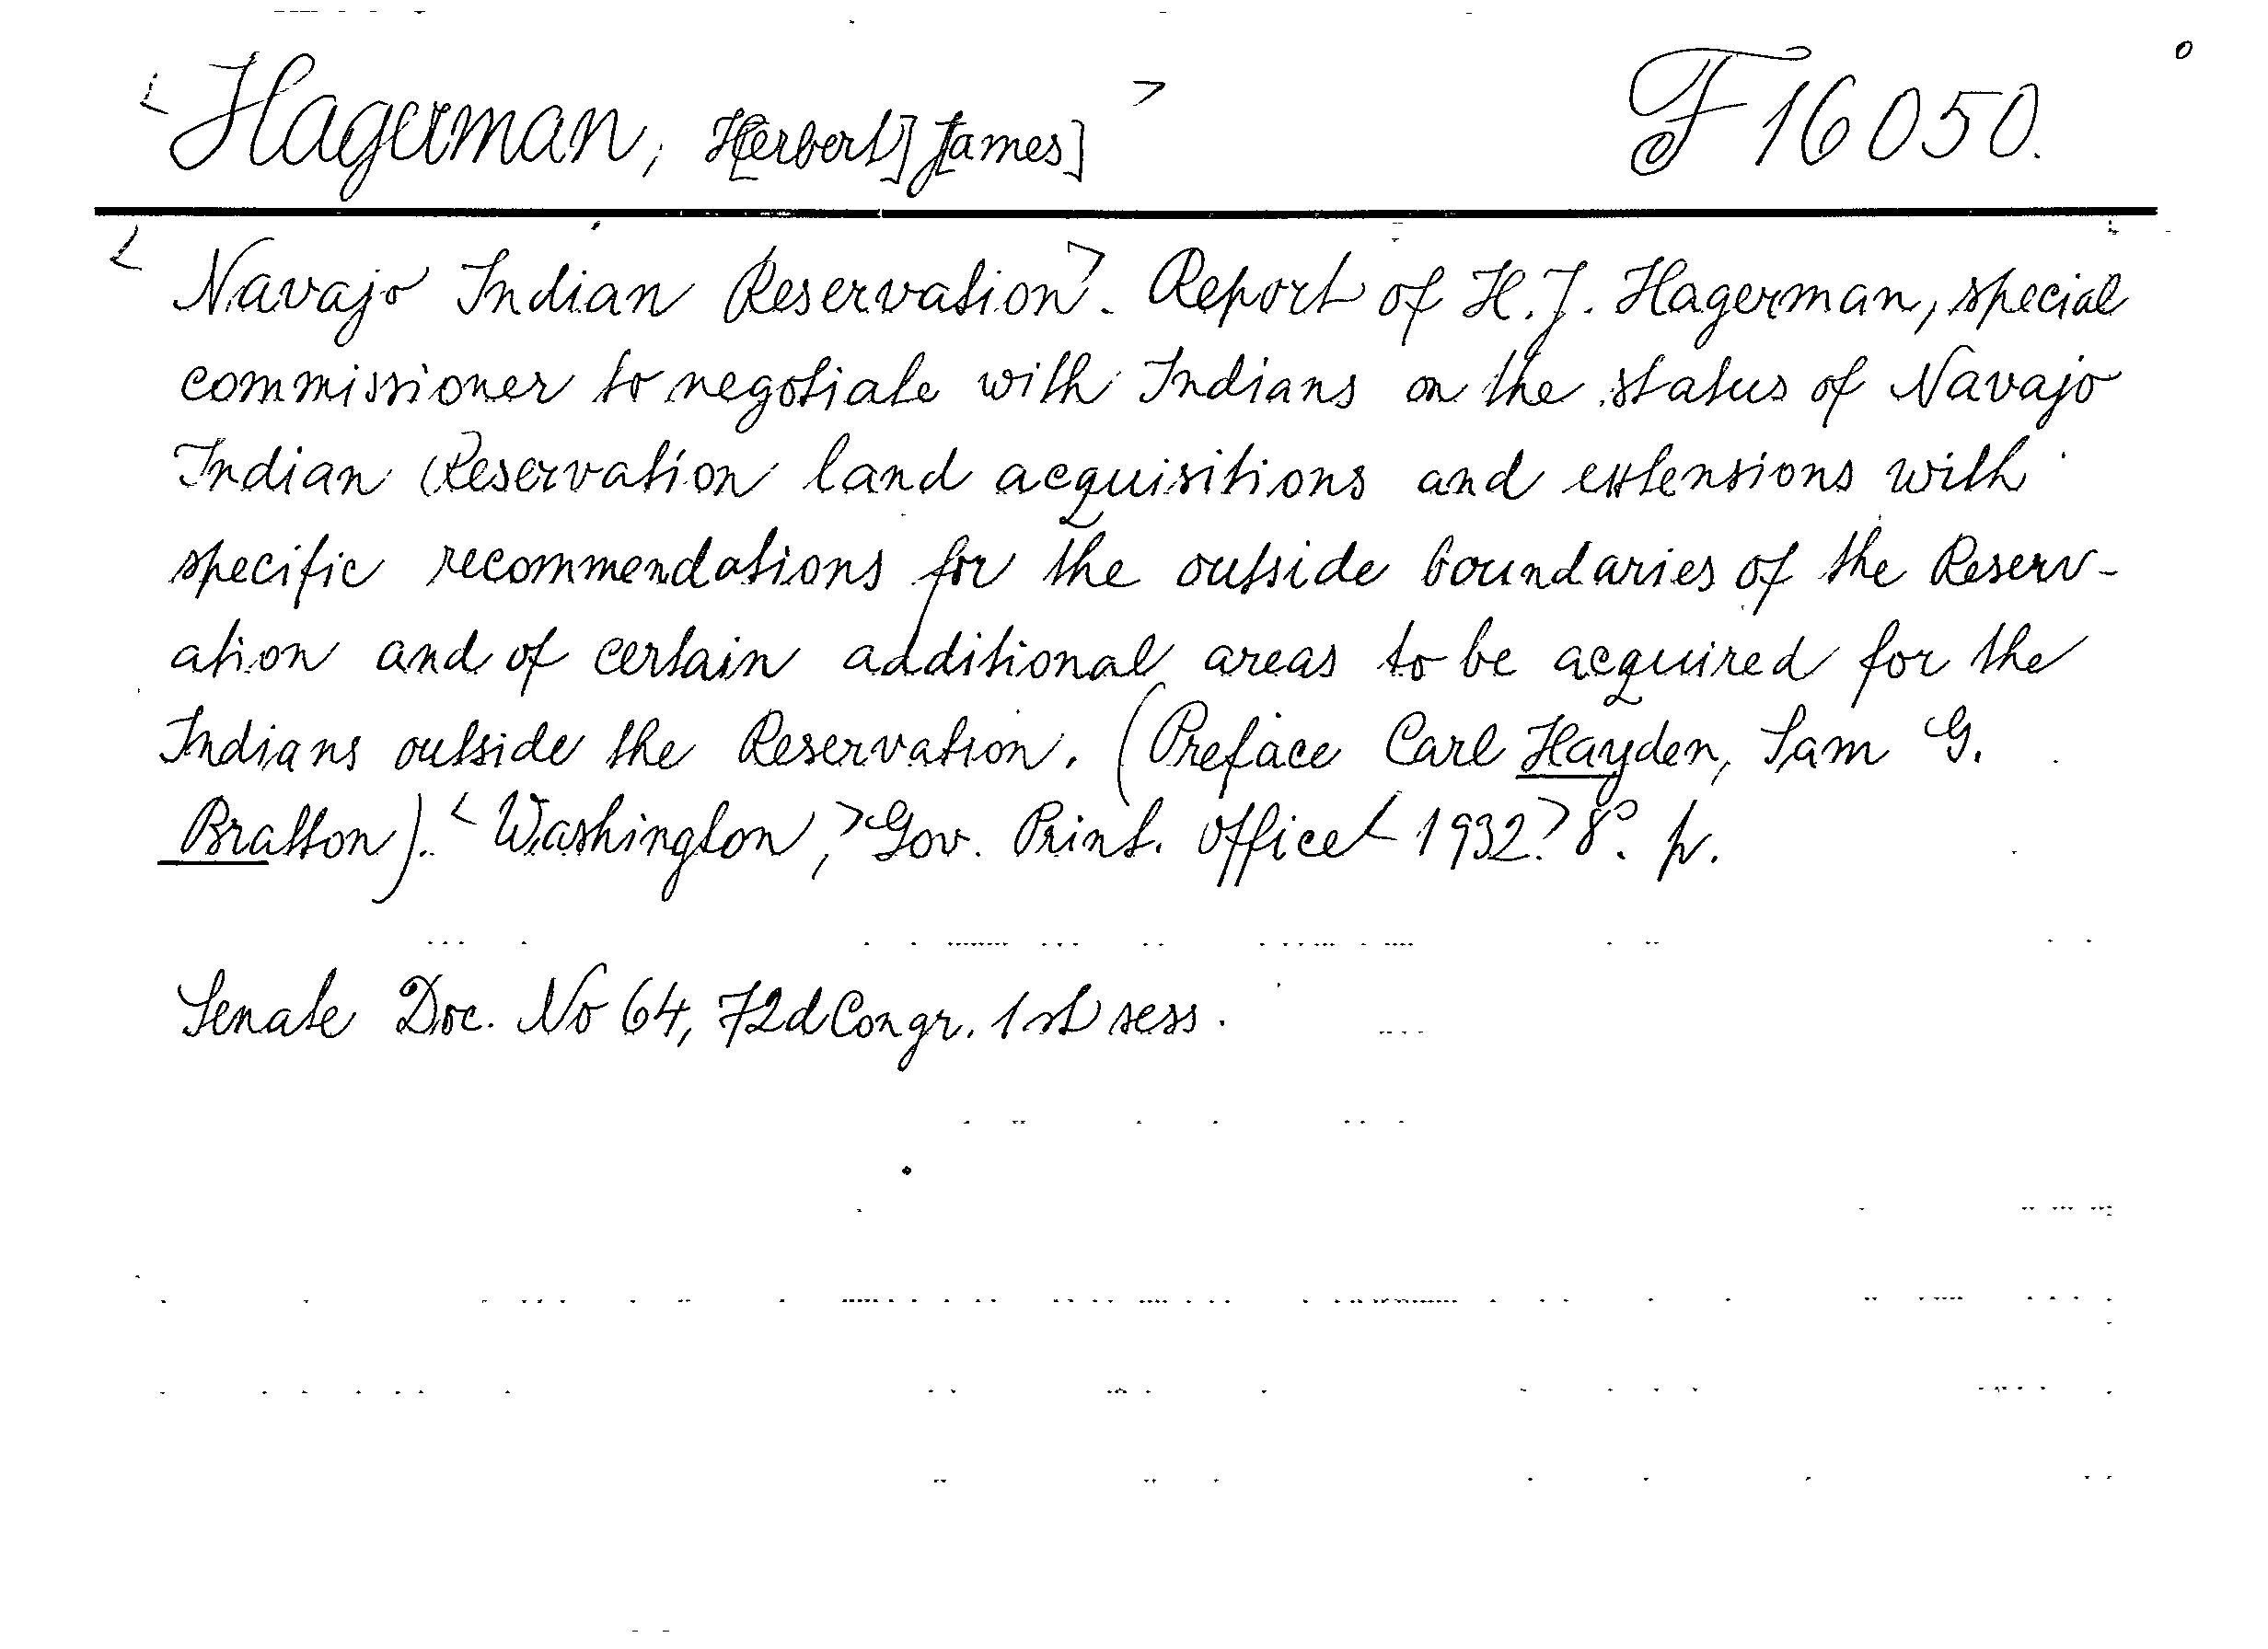 <Hagerman, H[erbert] J[ames]> F 16050.
<Navajo Indian Reservation>. Report of H.J. Hagerman, special
commissioner to negotiate with Indians on the status of Navajo
Indian Reservation land acquisitions and extensions with
specific recommendations for the outside boundaries of the Reserv-
ation and of certain additional areas to be acquired for the
Indians outside the Reservation. (Preface Carl Hayden, Sam G.
Bratton). <Washington,> Gov. Print. Office <1932> 8°. p.
Senate Doc. No 64, 72d Congr. 1st sess.